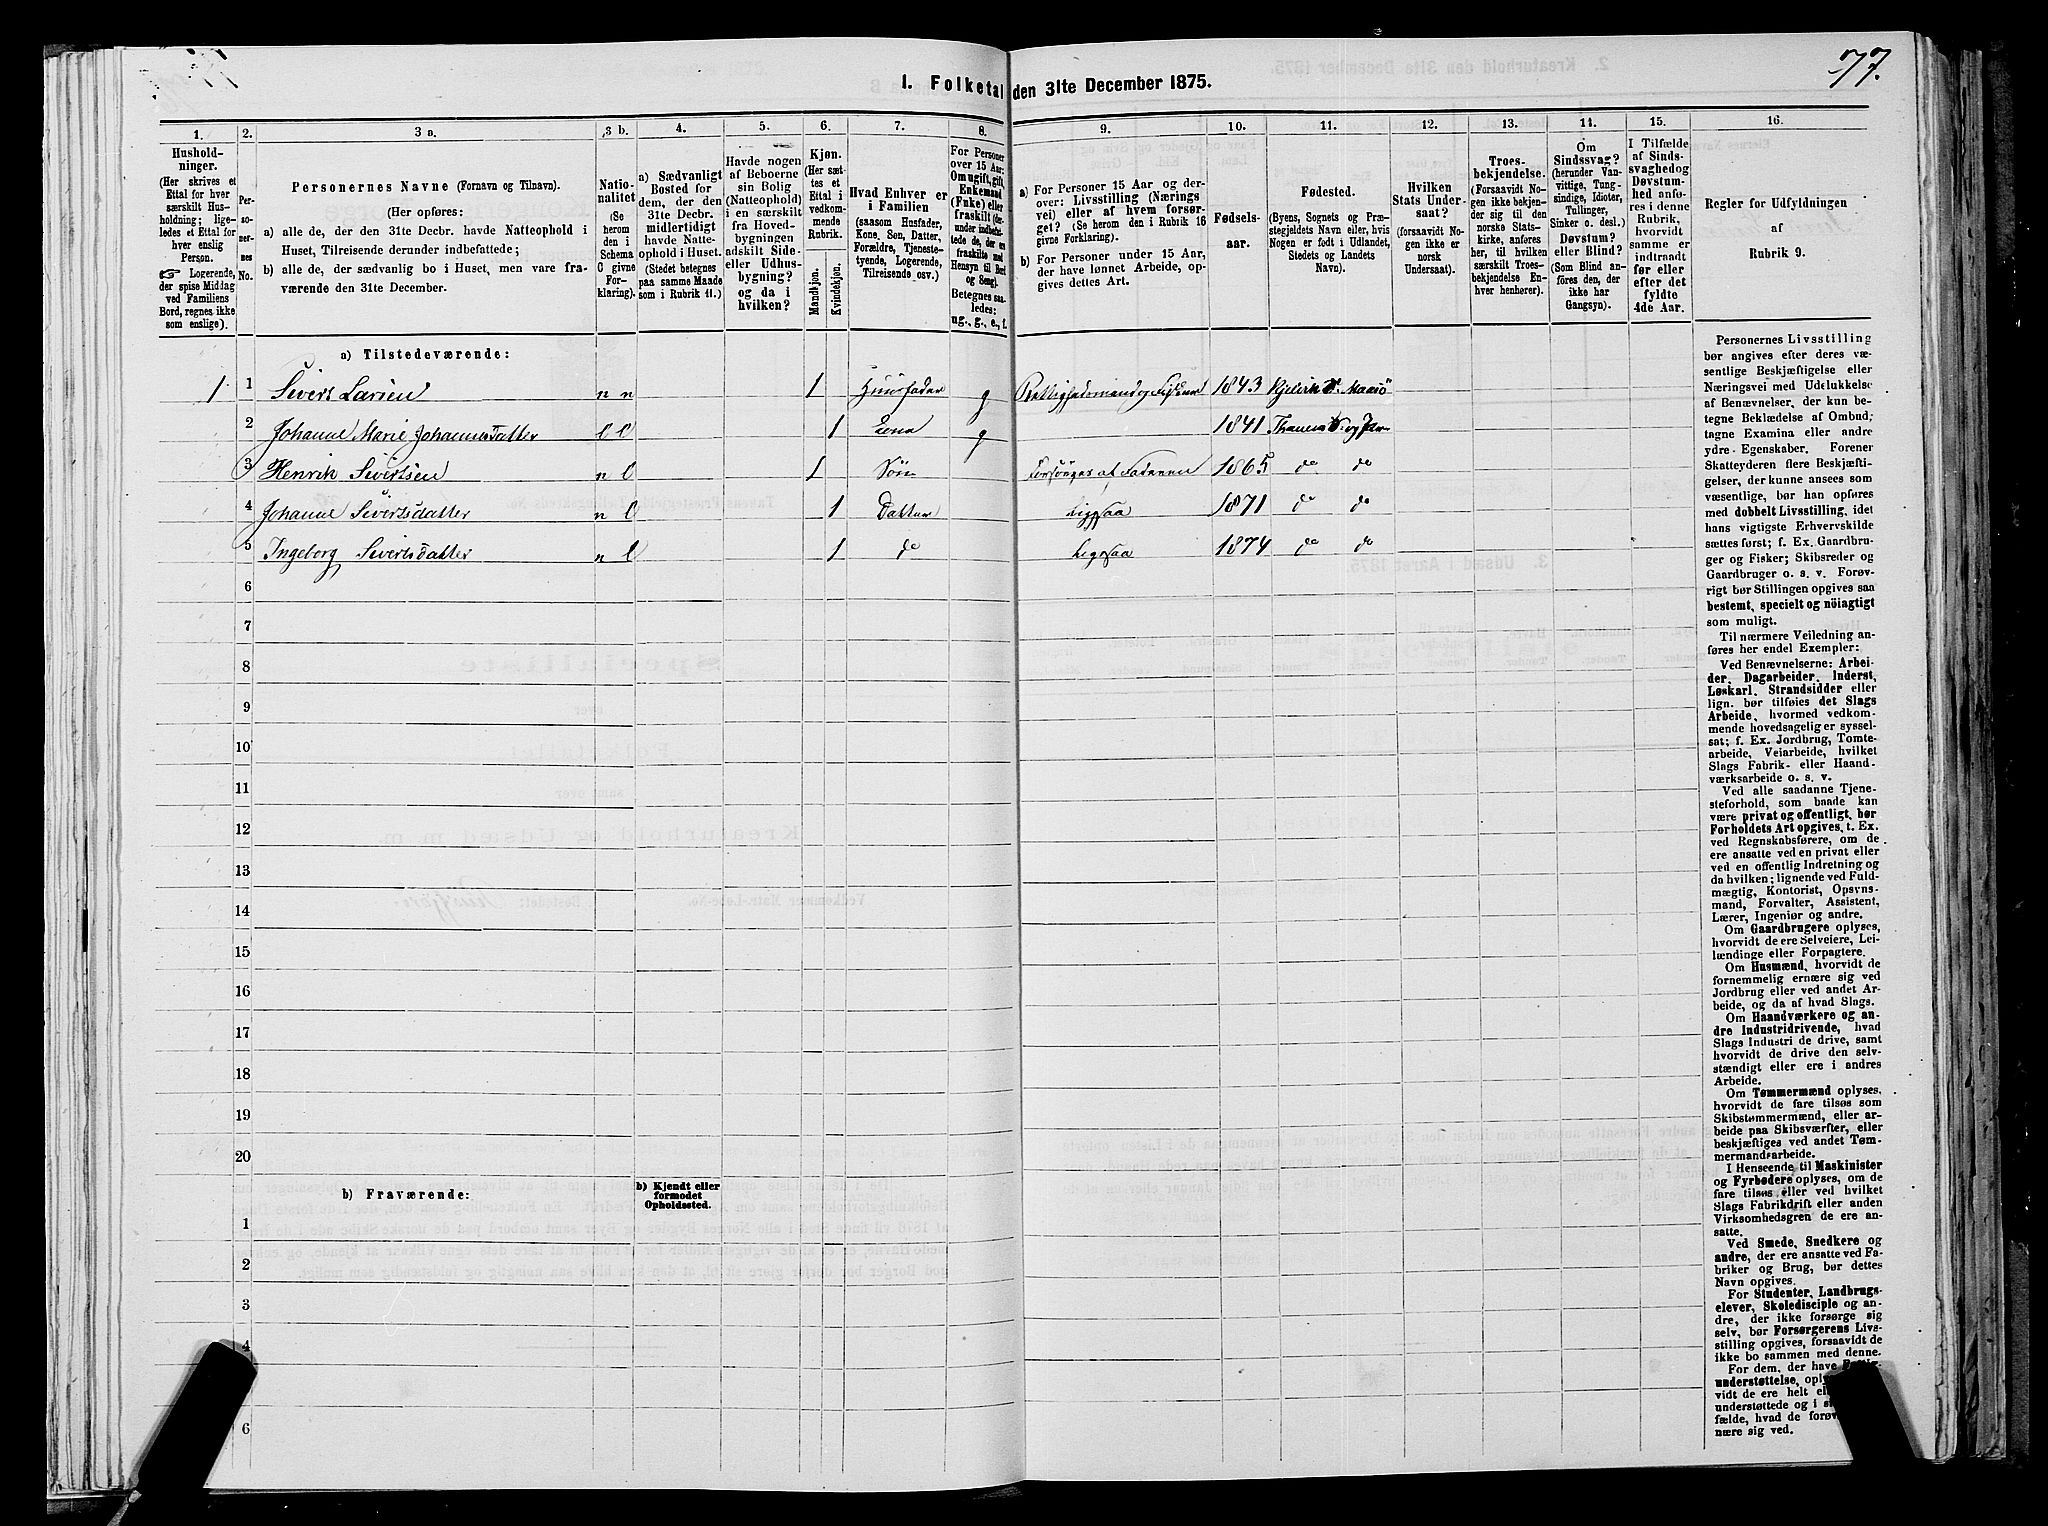 77.
I. Folketal den 31te December 1875.
1. 2. 3 a. 3 b. 4. 5. 6. 7. 8. 9. 10. 11. 12. 13. 14. 15. 16.
Hushold-
ninger.
(Her skrives et
Ettal for hver
særskilt Hus-
holdning; lige-
ledes et Ettal for
hver enslig
Person.
☞ Logerende,
der spise Middag
ved Familiens
Bord, regnes ikke
som enslige).
Per-
so-
ner-
nes
No.
Personernes Navne (Fornavn og Tilnavn).
(Her opføres:
a) alle de, der den 31te Decbr. havde Natteophold i
Huset, Tilreisende derunder indbefattede;
b) alle de, der sædvanlig bo i Huset, men vare fra-
værende den 31te December.
Natio-
nalitet
(Se
herom
den i
Schema
C givne
For-
klaring).
a) Sædvanligt
Bosted for
dem, der den
31te Decbr.
midlertidigt
havde Natte-
ophold i Huset.
(Stedet betegnes
paa samme Maade
som i Rubrik 11.)
Havde nogen
af Beboerne
sin Bolig
(Natteophold)
i en særskilt
fra Hoved-
bygningen
adskilt Side-
eller Udhus-
bygning?
og da i
hvilken?
Kjøn.
(Her sæt-
tes et
Ettal i
vedkom-
mende
Rubrik.
Mandkjøn.
Kvindekjøn.
Hvad Enhver er
i Familien
(saasom Husfader,
Kone, Søn, Datter,
Forældre, Tjeneste-
tyende, Logerende,
Tilreisende osv.)
For Personer
over 15 Aar:
Om ugift, gift,
Enkemand
(Enke) eller
fraskilt (der-
under indbefat-
tede de, der er
fraskilte med
Hensyn til Bord
og Seng).
Betegnes saa-
ledes:
ug., g., e., f.
a) For Personer 15 Aar og der-
over: Livsstilling (Nærings
vei) eller af hvem forsør-
get? (Se herom den i Rubrik 16
givne Forklaring.)
b) For Personer under 15 Aar,
der have lønnet Arbeide, op-
gives dettes Art.
Fødsels-
aar.
Fødested.
(Byens, Sognets og Præ-
stegjeldets Navn eller, hvis
Nogen er født i Udlandet,
Stedets og Landets
Navn).
Hvilken
Stats Under-
saat?
(forsaavidt No-
gen ikke er
norsk
Undersaat).
Troes-
bekjendelse.
(Forsaavidt No-
gen ikke bekjen-
der sig til den
norske Stats-
kirke, anføres
her, til hvilken
særskilt Troes-
bekjendelse En-
hver henhører).
Om
Sindssvag?
(herunder Van-
vittige, Tung-
sindige, Idioter,
Tullinger,
Sinker o. desl.)
Døvstum?
eller Blind?
(Som Blind an-
føres den, der
ikke har
Gangsyn).
I Tilfælde
af Sinds-
svaghed og
Døvstum-
hed anfø-
res i denne
Rubrik,
hvorvidt
samme er
indtraadt
før eller
efter det
fyldte
4de Aar.
Regler for Udfyldningen
af
Rubrik 9.
a) Tilstedeværende:
1 1 Siverts Larsen n n 1 Huusfader g 1843 Maasö
2 Johanne Marie Johannesdatter l l 1 Kona g 1841
3 Henrik Sivertsen n l 1 Sön Forsörges af Faderen 1865 do do
4 Johanne Sivertsdatter n l 1 Datter Ligesaa 1871 do do
5 Ingeborg Sivertsdatter n l 1 do Ligesaa 1874 do do
6
7
8
9
10
11
12
13
14
15
16
17
18
19
20
b) Fraværende:
b) Kjendt eller
formodet
Opholdssted.
1
2
3
4
6
Personernes Livsstilling
bør angives efter deres væ-
sentlige Beskjæftigelse eller
Næringsvei med Udelukkelse
af Benævnelser, der kun be-
tegne Beklædelse af Ombud,
tagne Examina eller andre
ydre Egenskaber. Forener
Skatteyderen flere Beskjæfti-
gelser, der kunne ansees som
væsentlige, bør han opføres
med dobbelt Livsstilling, idet
hans vigtigste Erhvervskilde
sættes først; f. Ex. Gaardbru-
ger og Fisker; Skibsreder og
Gaardbruger o. s. v. Forøv-
rigt bør Stillingen opgives saa
bestemt, specielt og nöiagtigt
som muligt.
Til nærmere Veiledning an-
føres her endel Exempler:
Ved Benævnelserne: Arbei-
der, Dagarbeider, Inderst,
Løskarl, Strandsidder eller
lign. bør tilføies det Slags
Arbeide, hvormed vedkom-
mende hovedsagelig er syssel-
sat; f. Ex. Jordbrug, Tomte-
arbeide, Veiarbeide, hvilket
Slags Fabrik- eller Haand-
værksarbeide o. s. v.
Ved alle saadanne Tjene-
steforhold, som baade kan
være privat og offentligt, bør
Forholdets Art opgives, t. Ex.
ved Regnskabsførere, om de
ere ansatte ved en privat eller
ved en offentlig Indretning og
da hvilken; lignende ved Fuld-
mægtig, Kontorist, Opsyns-
mand, Forvalter, Assistent,
Lærer, Ingeniør og andre.
Om Gaardbrugere oplyses,
hvorvidt de ere Selveiere, Lei-
lændinge eller Forpagtere.
Om Husmænd, hvorvidt de
fornemmelig ernære sig ved
Jordbrug eller ved andet Ar-
beide, og da af hvad Slags.
Om Haandværkere og an-
dre Industridrivende, hvad
Slags Industri de drive, samt
hvorvidt de drive den selv-
stændigt eller ere i andres
Arbeide.
Om Tømmermænd oplyses,
hvorvidt de fare tilsøs som
Skibstømmermænd, eller ar-
beide paa Skibsværfter, eller
beskjæftiges ved andet Tøm-
mermandsarbeide.
I Henseende til Maskinister
og Fyrbødere oplyses, om de
fare tilsøs eller ved hvilket
Slags Fabrikdrift eller anden
Virksomhedsgren de ere an-
satte.
Ved Smede, Snedkere og
andre, der ere ansatte ved Fa-
briker og Brug, bør dettes
Navn opgives.
For Studenter, Landbrugs-
elever, Skoledisciple og an-
dre, der ikke forsørge sig
selv, bør Forsørgerens Livs-
stilling opgives, forsaavidt de
ikke bo sammen med denne.
For dem, der have
understøttelse,
vidt de ere helt
understøttede og i
fælde, hvad de
nære sig ved.